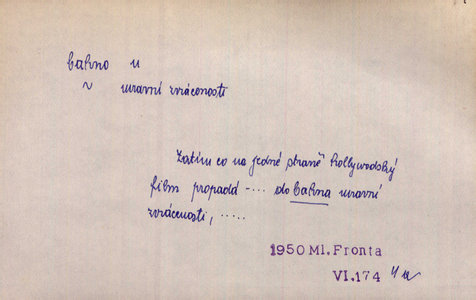 bahno u
~ mravní zvrácenosti
Zatím co na jedné straně hollywodský
film propadá -... do bahna mravní
zvrácenosti, .....
1950 Ml. Fronta
VI.174